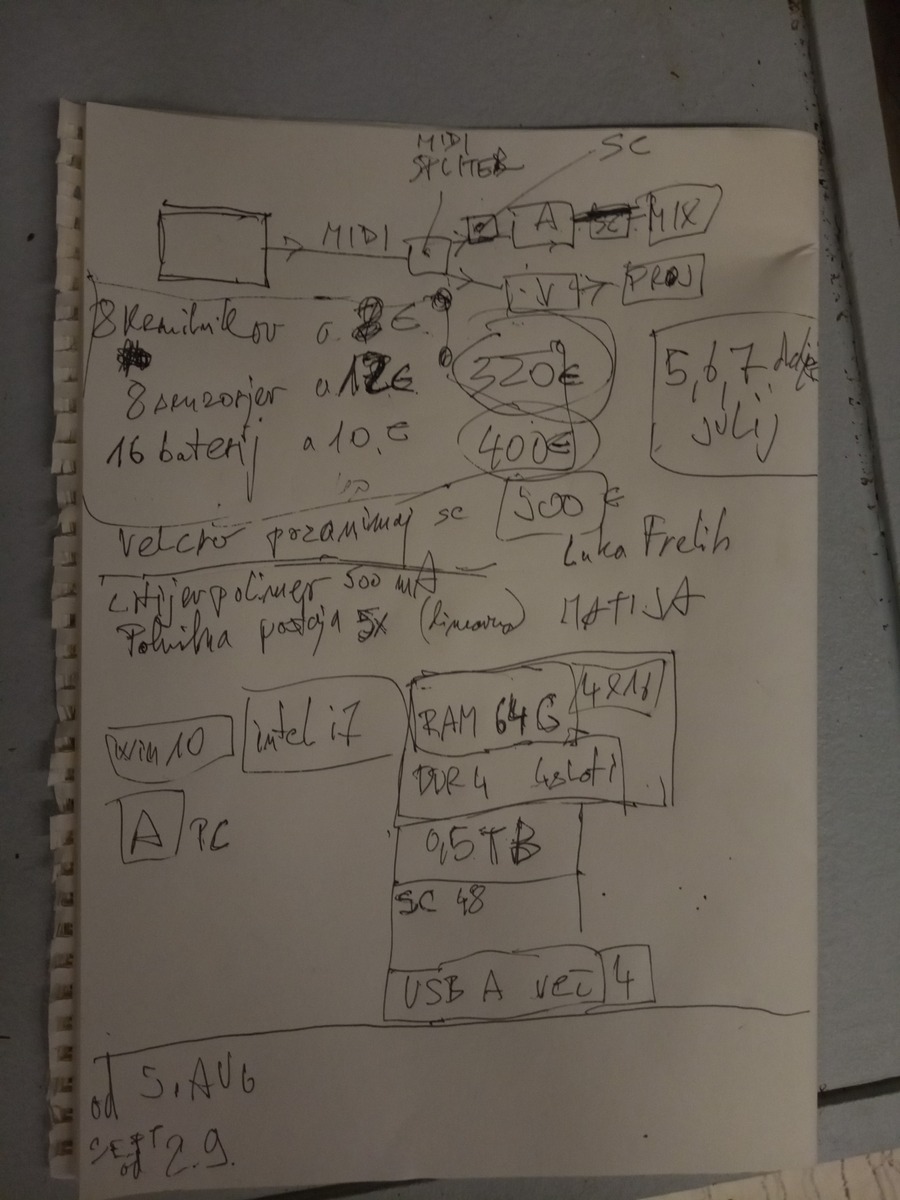 MIDI
SPLITER
SC
MIDI
A
MIX
V
PROJ
8
8 senzorjev a 12€
320€
16 baterij a 10.€
400€
5,6,7,
julij
Velcro pozanimaj se
500 €
Luka Frelih
Litijev polimer 500 mA
Polnilna postaja 5x (linearna)
MATIJA
win 10
intel i7
RAM 64G
4x16
DDR4 4 sloti
A PC
0,5TB
SC 48
USB A več 4
od 5. AUG
SEPT
od 2.9.